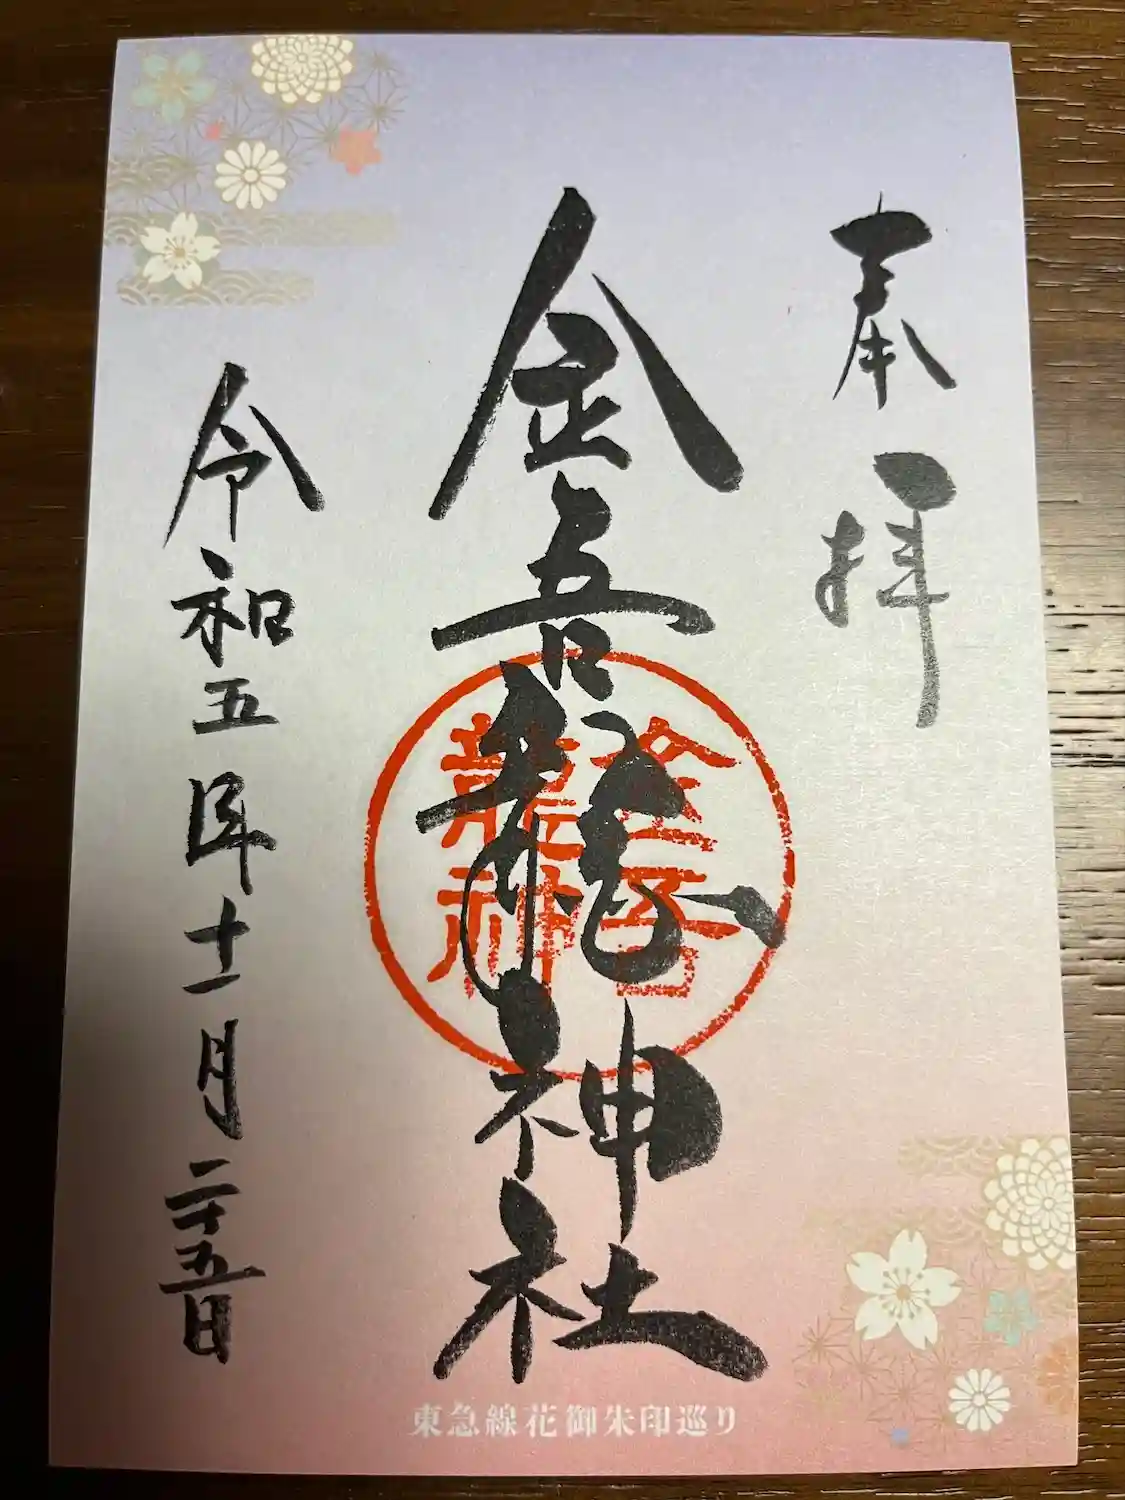 奉拝
金吾龍神社
金吾
龍神
令和五年十一月二十五日
東急線花御朱印巡り